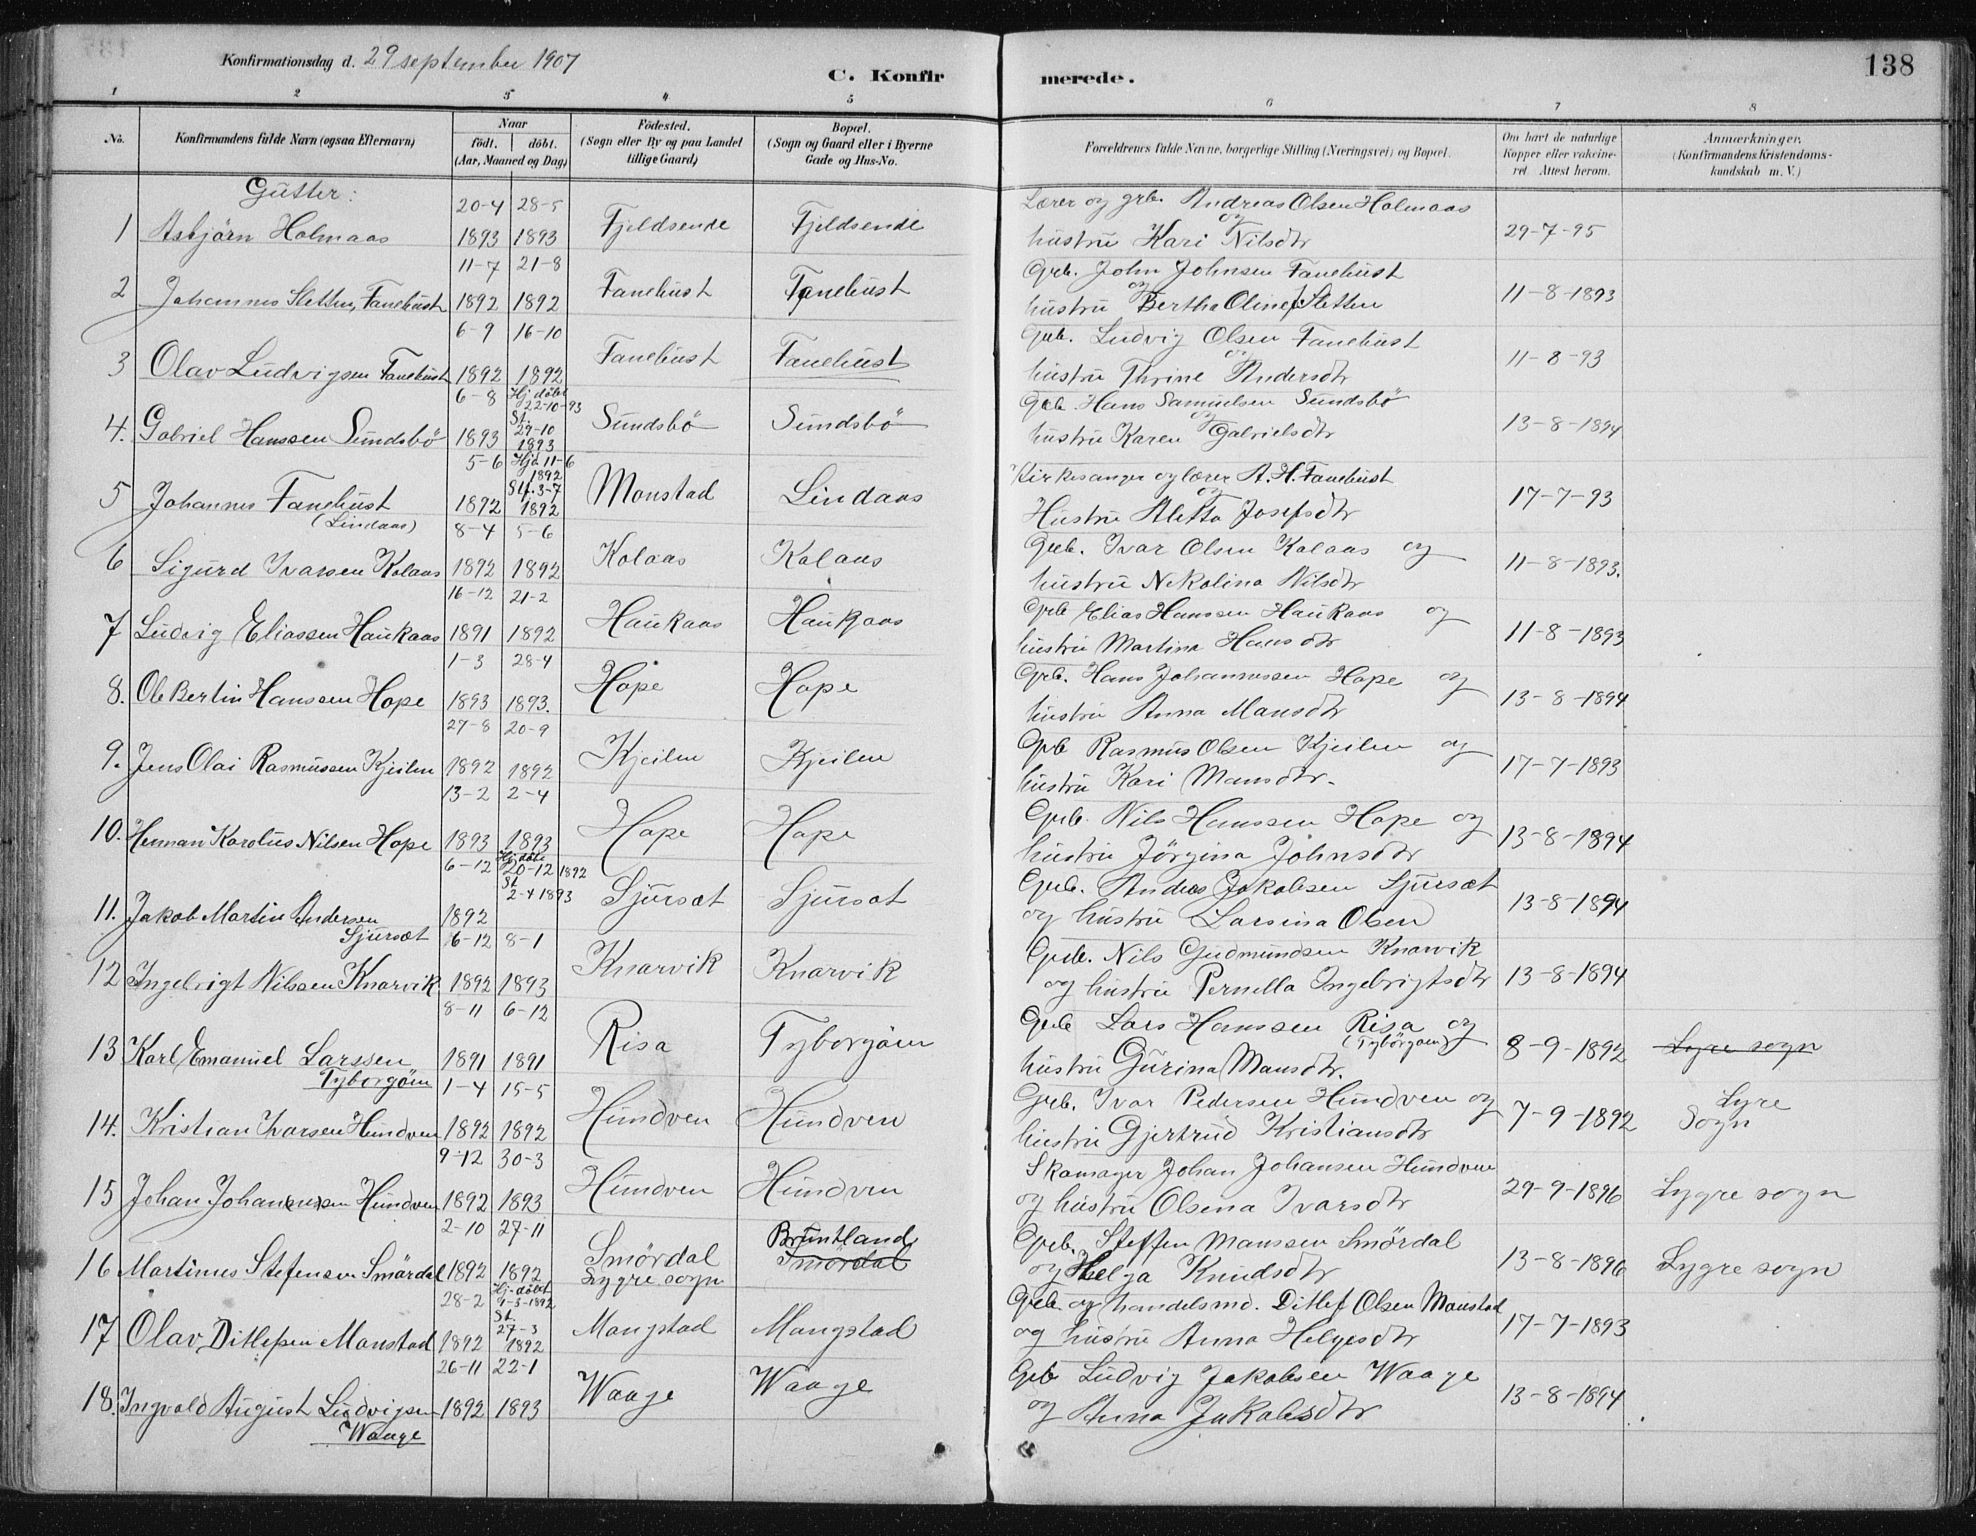 138
Konfirmationsdag d. 29 september 1907
C. Konfirmerede.
1 2 3 4 5 6 7 8
No. | Konfirmandens fulde Navn (ogsaa Efternavn) | Naar født. døbt. (Aar, Maaned og Dag) | Fødested. (Sogn eller By og paa Landet tillige Gaard) | Bopæl. (Sogn og Gaard eller i Byerne Gade og Hus-No. | Forældrenes fulde Navne, borgerlige Stilling (Næringsvei) og Bopæl. | Om havt de naturlige Kopper eller vakcineret. Attest herom. | Anmærkninger. (Konfirmandens Kristendomskundskab m. V.)
Gutter:
1 Asbjörn Holmaas | 20-4 1893 | 28-5 1893 | Fjeldsende | Fjeldsende | Lærer og grb. Andreas Olsen Holmaas og
hustru Kari Nilsdtr | 29-7-95
2 Johannes Sletten, Fanehust | 11-7 1892 | 21-8 1892 | Fanehust | Fanehust | Grb. John Johnsen Fanehust og
hustru Bertha Oline J. Sletten | 11-8-1893
3 Olav Ludvigsen Fanehust | 6-9 1892 | 16-10 1892 | Fanehust | Fanehust | Grb. Ludvig Olsen Fanehust og
hustru Thrine Andersdtr | 11-8-93
4. Gabriel Hanssen Sundsbö | 6-8 1893 | Hj. döbt 22-10-93 St. 29-10 1893 | Sundsbö | Sundsbö | Grb. Hans Samuelsen Sundsbö og
hustru Karen Gabrielsdtr | 13-8-1894
5 Johannes Fanehust (Lindaas) | 5-6 1892 | Hjd 11-6 1892 Stf. 3-7 1892 | Monstad | Lindaas | Kirkesanger og lærer A. H. Fanehust og
Hustru Aletta Josefsdtr | 17-7-93
6 Sigurd Ivarsen Kolaas | 8-4 1892 | 5-6 1892 | Kolaas | Kolaas | Grb. Ivar Olsen Kolaas og
hustru Nikolina Nilsdtr | 11-8-1893.
7 Ludvig Eliassen Haukaas | 16-12 1891 | 21-2 1892 | Haukaas | Haukaas | Grb Elias Hanssen Haukaas og
hustru Martina Hansdtr | 11-8-1893
8. Ole Bertin Hanssen Hope | 1-3 1893 | 28-4 1893. | Hope | Hope | Grb. Hans Johannessen Hope og
hustru Anna Mansdtr | 13-8-1894
9. Jens Olai Rasmussen Kjeilen | 27-8 1892 | 20-9 1892 | Kjeilen | Kjeilen | Grb Rasmus Olsen Kjeilen og
hustru Kari Mansdtr. | 17-7-1893
10. Herman Karolus Nilsen Hope | 13-2 1893 | 2-4 1893 | Hope | Hope | Grb. Nils Hanssen Hope og
hustru Jörgina Johnsdtr | 13-8-1894
11. Jakob Martin Andersen Sjursæt | 6-12 1892 | Hj. döbt 20-12 1892 St 2-4 1893 | Sjursæt | Sjursæt | Grb. Andres Jakobsen Sjursæt
og hustru Larsina Olsen | 13-8-1894
12 Ingebrigt Nilssen Knarvik | 6-12 1892 | 8-1 1893 | Knarvik | Knarvik | Grb. Nils Gudmundsen Knarvik
og hustru Pernella Ingebrigtsdtr | 13-8-1894
13 Karl Emanuel Larssen Tyborgöm | 8-11 1891 | 6-12 1891 | Risa | Tyborgöm | Grb Lars Hanssen Risa og (Tyborgöm)
hustru Gurina Mansdtr. | 8-9-1892 | Lygre sogn
14. Kristian Ivarsen Hundven | 1-4 1892 | 15-5 1892 | Hundven | Hundven | Grb. Ivar Pedersen Hundven og
hustru Gjertrud Kristiansdtr | 7-9-1892 | Lyre Sogn
15 Johan Johannesen Hundven | 9-12 1892 | 30-3 1893 | Hundven | Hundven | Skomager Johan Johansen Hundven
og hustru Olsena Ivarsdtr | 29-9-1896 | Lygre sogn
16 Martinus Stefensen Smördal | 2-10 1892 | 27-11 1892 | Smördal Lygre sogn | Bruntland Smördal | Grb. Steffen Manssen Smördal
og Helga Knudsdtr | 13-8-1896 | Lygre sogn
17 Olav Ditlefsen Monstad | 28-2 1892 | Hj. döbt 4-3-1892 St. 27-3 1892 | Mongstad | Mongstad | Grb. og handelsmd. Ditlef Olsen Monstad
og hustru Anna Helgesdtr | 17-7-1893
18. Ingvald August Ludvigsen Waage | 26-11 1892 | 22-1 1893 | Waage | Waage | Grb Ludvig Jakobsen Waage
og Anna Jakobsdtr | 13-8-1894